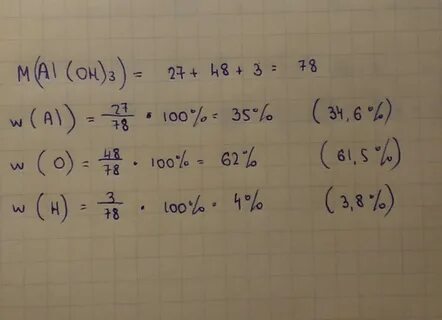 M(Al(OH)3) = 27 + 48 + 3 = 78
w (Al) = 27/78 · 100% = 35% (34,6%)
w (O) = 48/78 · 100% = 62% (61,5%)
w (H) = 3/78 · 100% = 4% (3,8%)